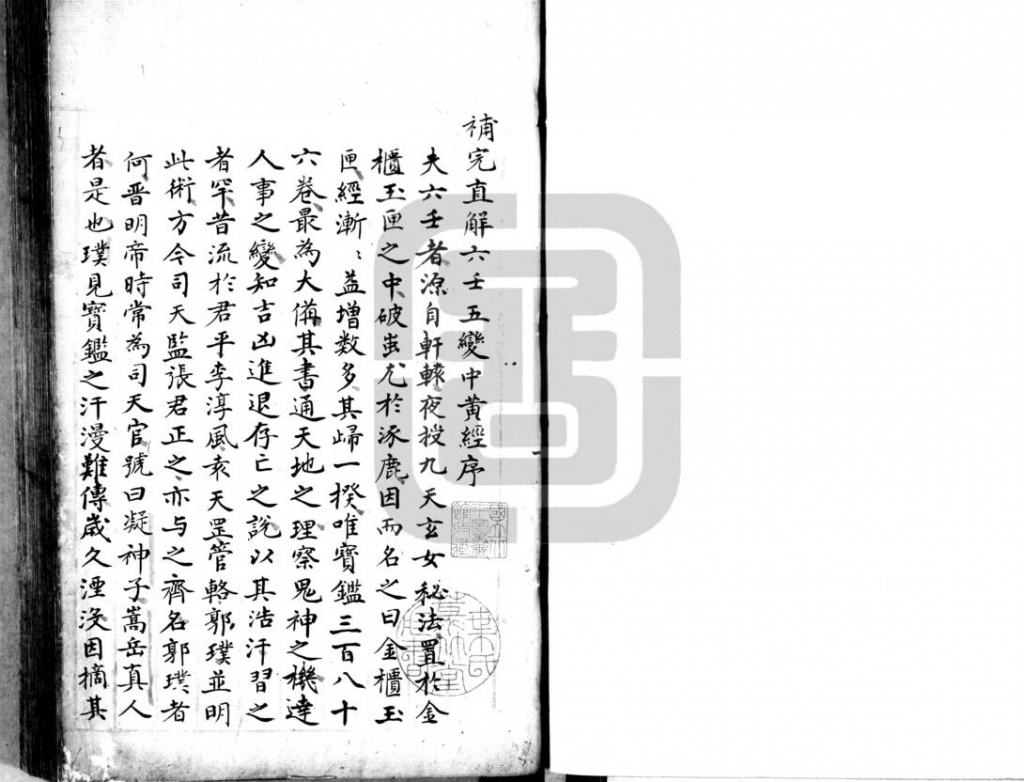 補完直解六壬五變中黄經序
夫六壬者源自軒轅夜授九天玄女秘法置於金
櫃玉匣之中破蚩尤於涿鹿因而名之曰金櫃玉
匣經漸〻益增数多其歸一揆唯寳鑑三百八十
六卷最為大備其書通天地之理察鬼神之機達
人事之變知吉凶進退存亡之說以其浩汗習之
者罕昔流於君平李淳風袁天罡管輅郭璞並明
此術方今司天監張君正之亦与之齊名郭璞者
何晋明帝時常為司天官號曰凝神子嵩岳真人
者是也璞見寳鑑之汗漫難傳歲久湮沒因摘其